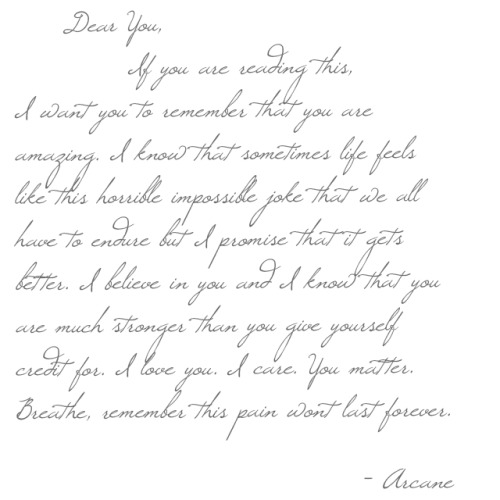 Dear You,
If you are reading this,
I want you to remember that you are
amazing. I know that sometimes life feels
like this horrible impossible joke that we all
have to endure but I promise that it gets
better. I believe in you and I know that you
are much stronger than you give yourself
credit for. I love you. I care. You matter.
Breathe, remember this pain wont last forever.
- Arcane